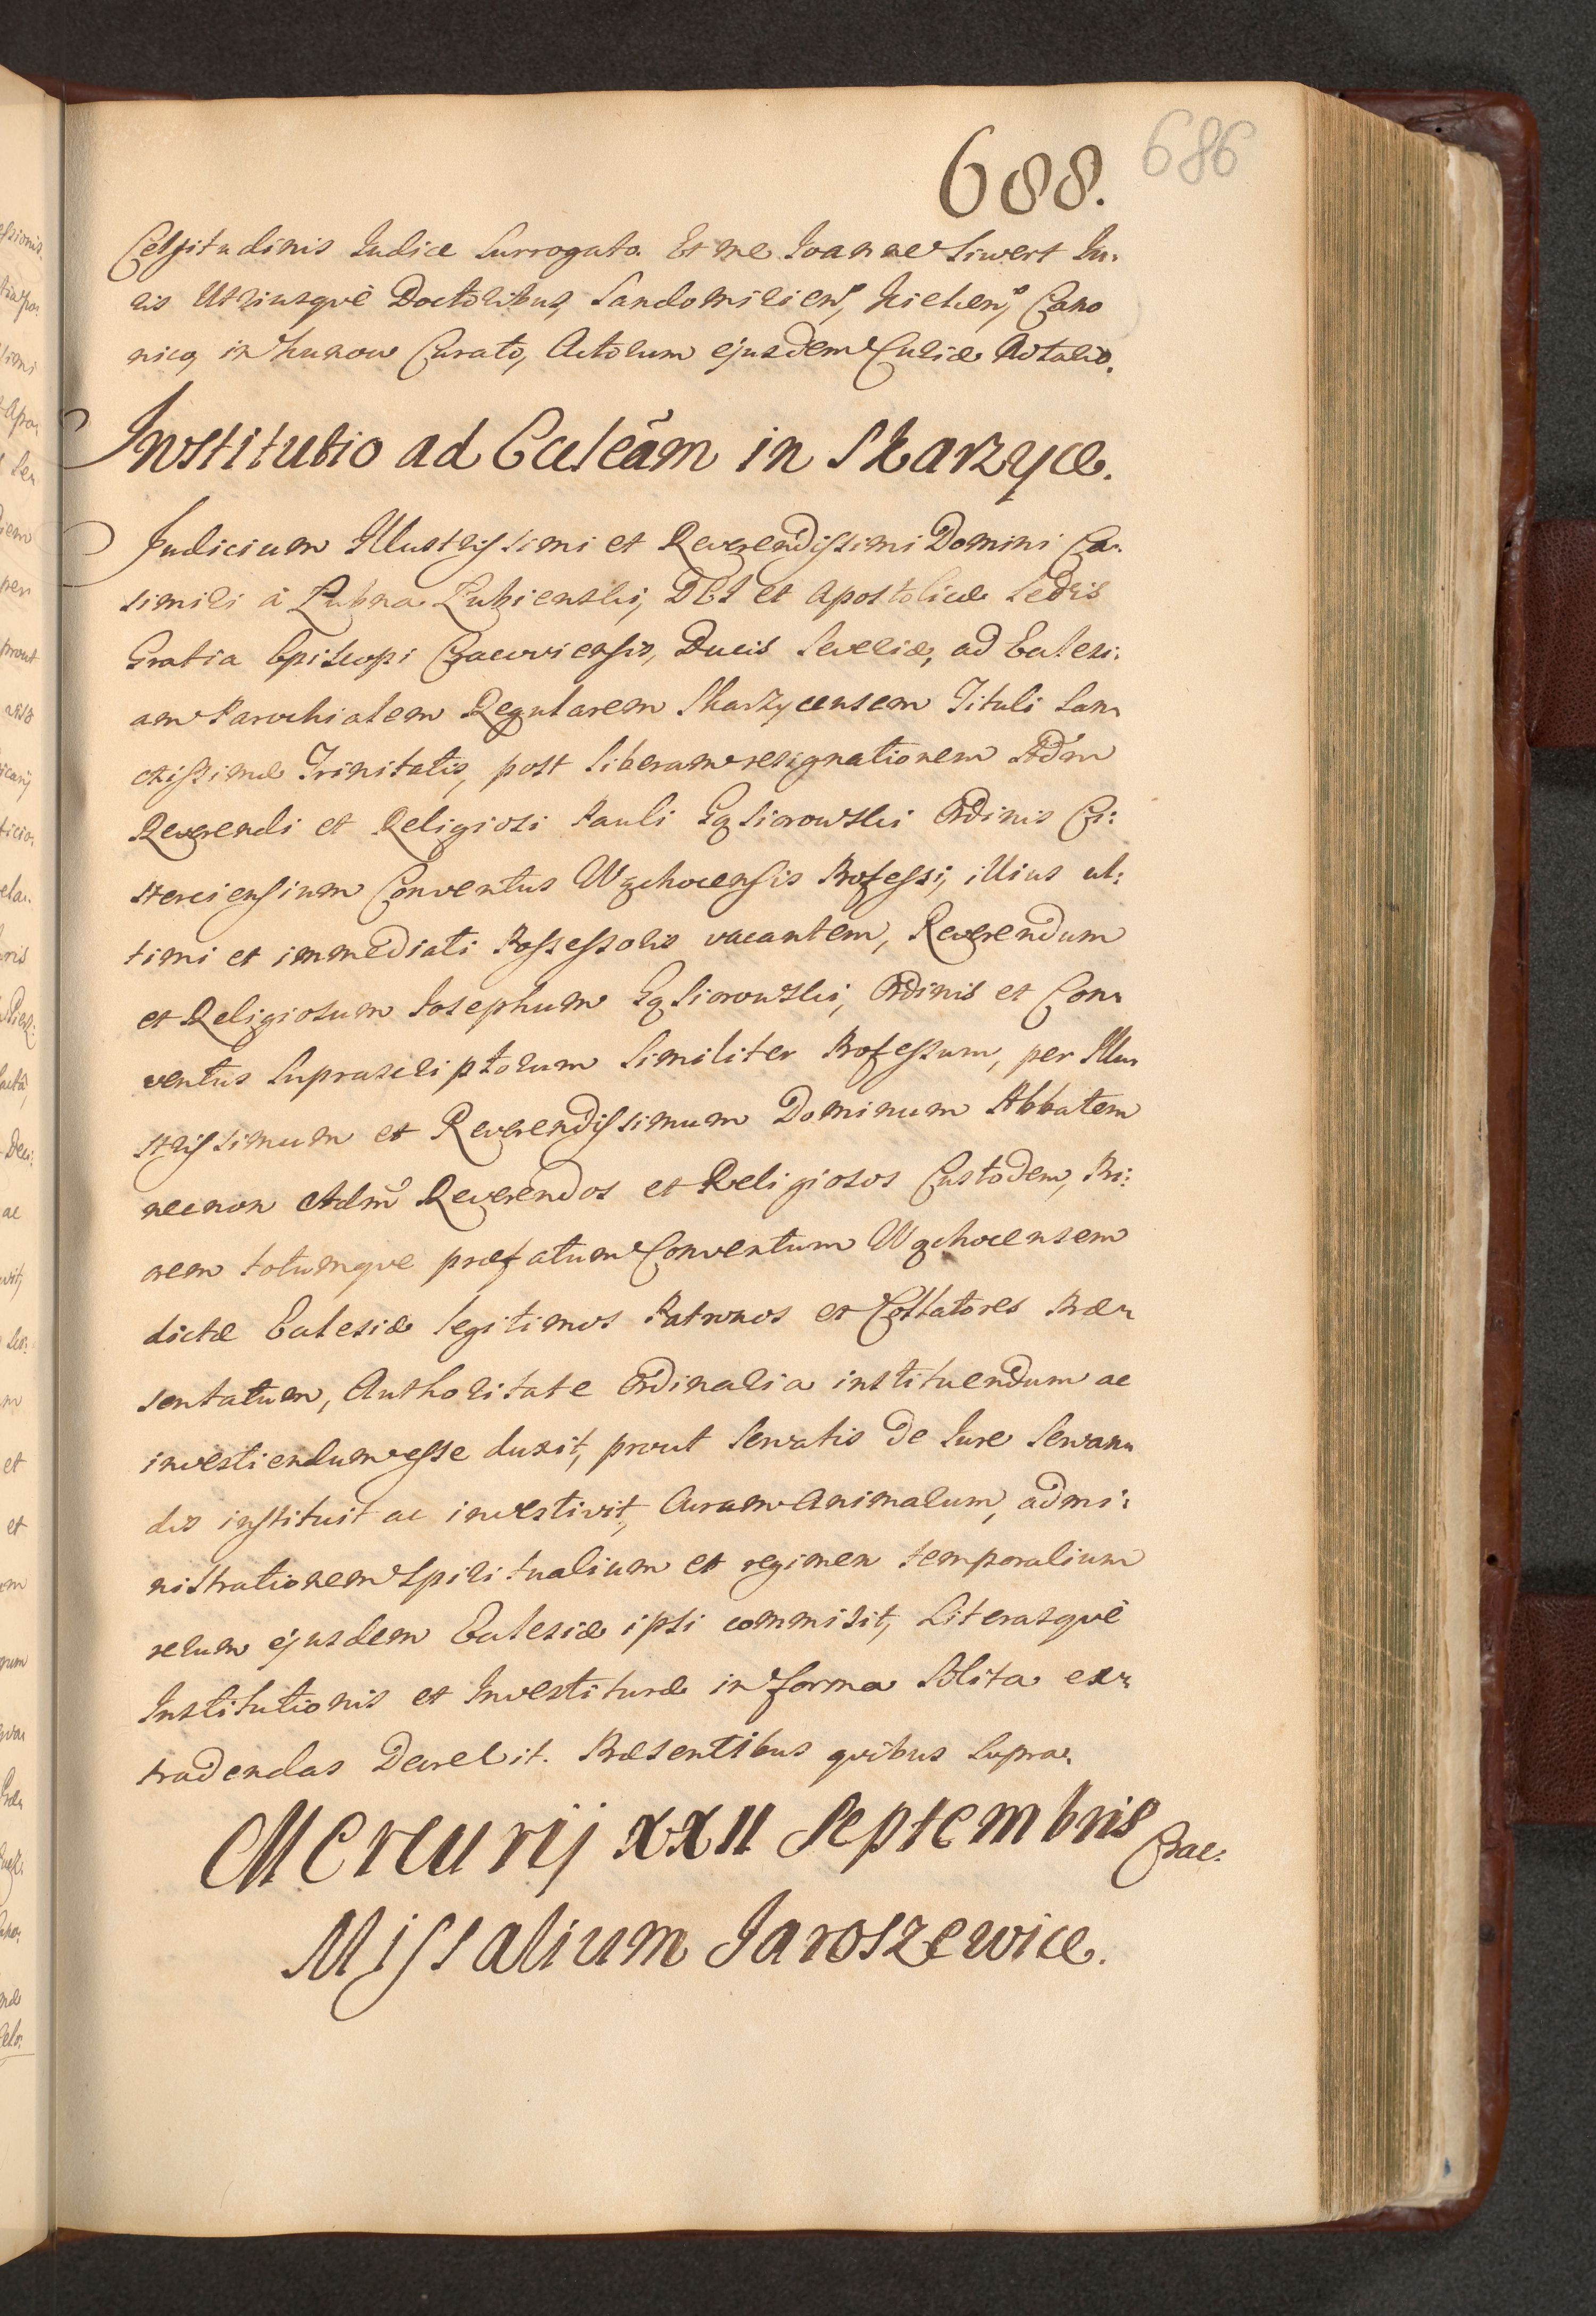 688. 686
Celsitudinis Iudice Surrogato. Et me Ioanne Siwert Iu:
ris Utriusquè Doctoribus, Sandomirien, Kielcen, Cano
nico, in Curato, Actorum ejusdem Curiæ Notario.
Institutio ad Eccleãm in Skarzyce.
Iudicium Illustrissimi et Reverendissimi Domini Ca:
simiri à Łubna Łubienski, DEI et Apostolicæ Sedis
Gratia Episcopi Cracoviensis, Ducis Severiæ, ad Ecclesi:
am Parochialem Regularem Skarzycensem Tituli San:
ctissimæ Trinitatis, post liberam resignationem Adm̃
Reverendi et Religiosi Pauli Gąsiorowski Ordinis Ci:
sterciensium Conventus Wąchocensis Professi, illius ul:
timi et immediati Possessoris vacantem, Reverendum
et Religiosum Iosephum Gąsiorowski, Ordinis et Con:
ventus Suprascriptorum Similiter Professum, per Illu:
strissimum et Reverendissimum Dominum Abbatem
necnon Adm̃ Reverendos et Religiosos Custodem, Pri:
orem totumque præfatum Conventum Wąchocensem
dictæ Ecclesiæ legitimos Patronos et Collatores Præ:
sentatum, Authoritate Ordinaria instituendum ac
investiendum esse duxit, prout Servatis de Iure Servan:
dis instituit ac investivit, Curam Animarum, admi:
nistrationem Spiritualium et regimen temporalium
rerum ejusdem Ecclesiæ ipsi commisit, Literasquè
Institutionis et Investituræ in forma Solita ex:
tradendas Decrevit. Præsentibus quibus Supra.
Mercurij XXII Septembris Crac:
Missalium Jaroszewice.